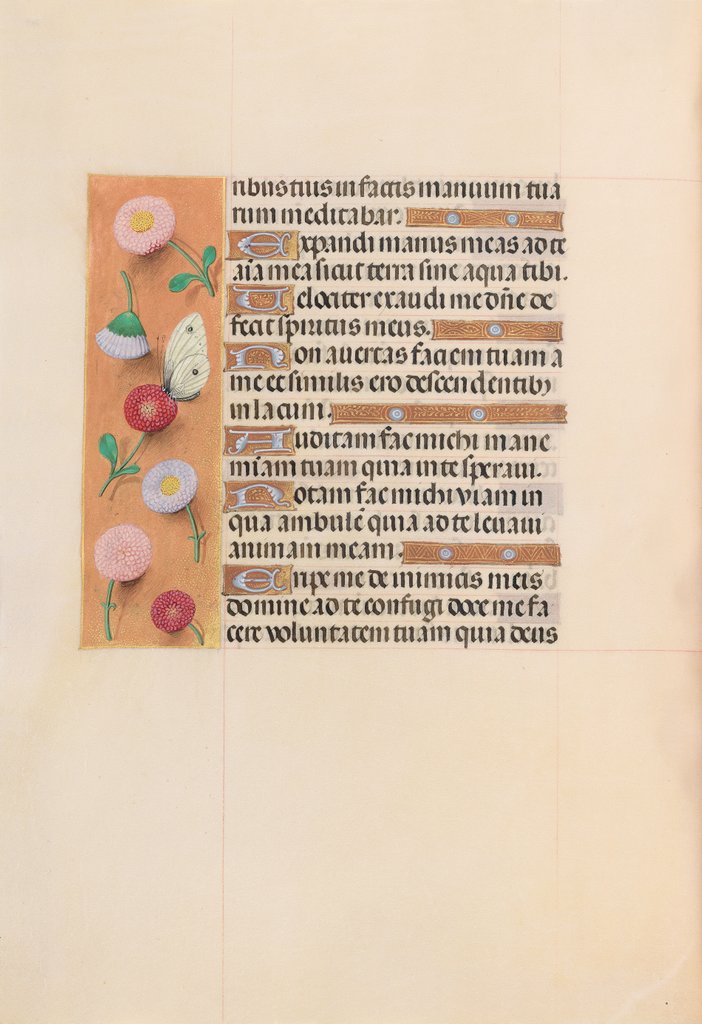 ribus tuis in factis manuum tua
rum meditabar.
Expandi manus meas ad te
aīa mea sicut terra sine aqua tibi.
Velociter exaudi me dn̄e de
fecit spiritus meus.
Non avertas faciem tuam a
me et similis ero descendentib9
in lacum.
Auditam fac michi mane
m̄iam tuam quia in te speravi.
Notam fac michi viam in
qua ambulē quia ad te levavi
animam meam.
Eripe me de inimicis meis
domine ad te confugi doce me fa
cere voluntatem tuam quia deus